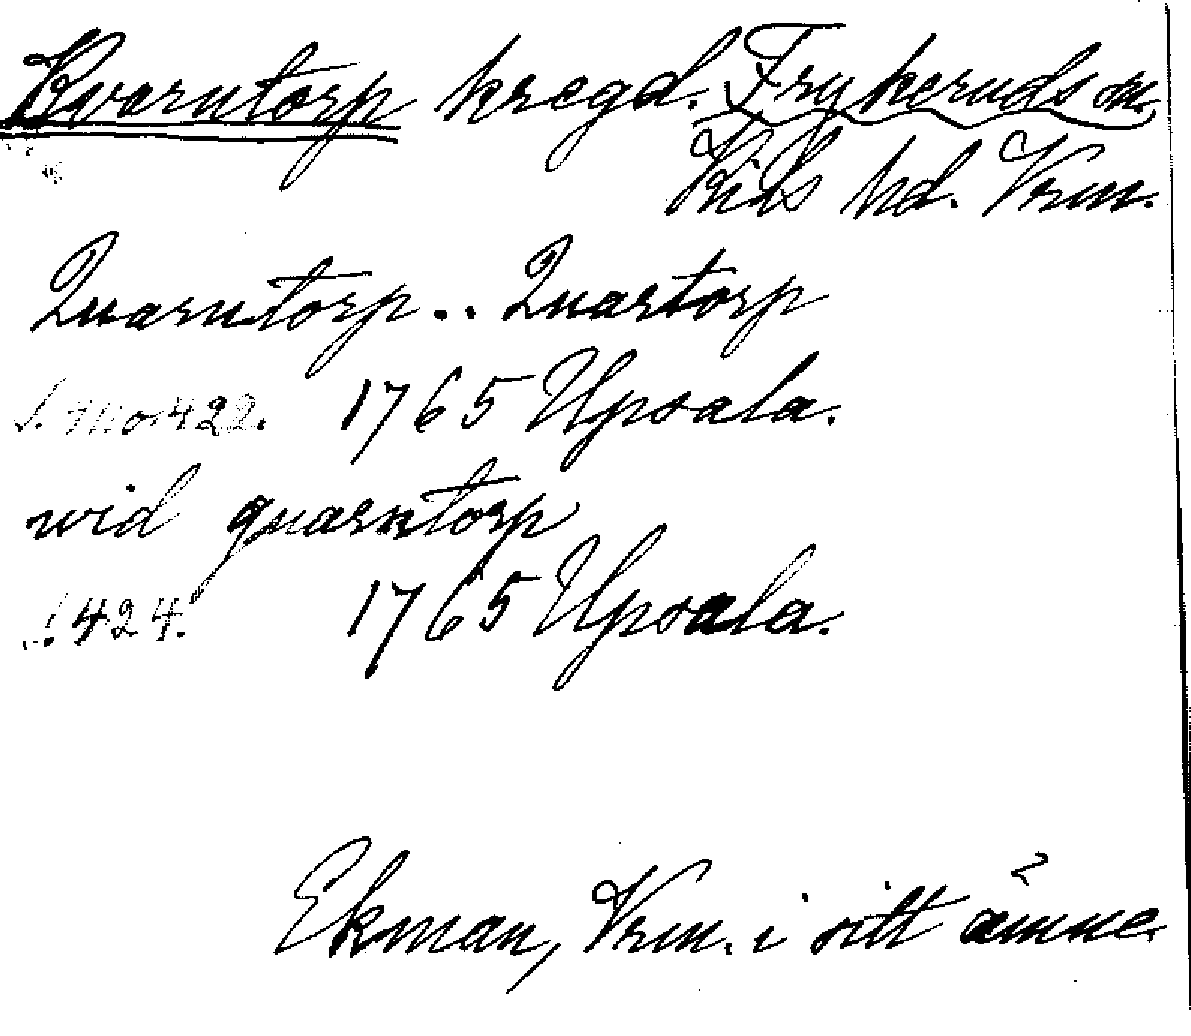 Kvarntorp kregd. Frykeruds sn.
Kils hd. Vrm.
Quarntorp.. Quartorp
s. 422. 1765 Upsala.
wid quarntorp
s. 424. 1765 Upsala.
Ekman, Vrm. i sitt ämne.